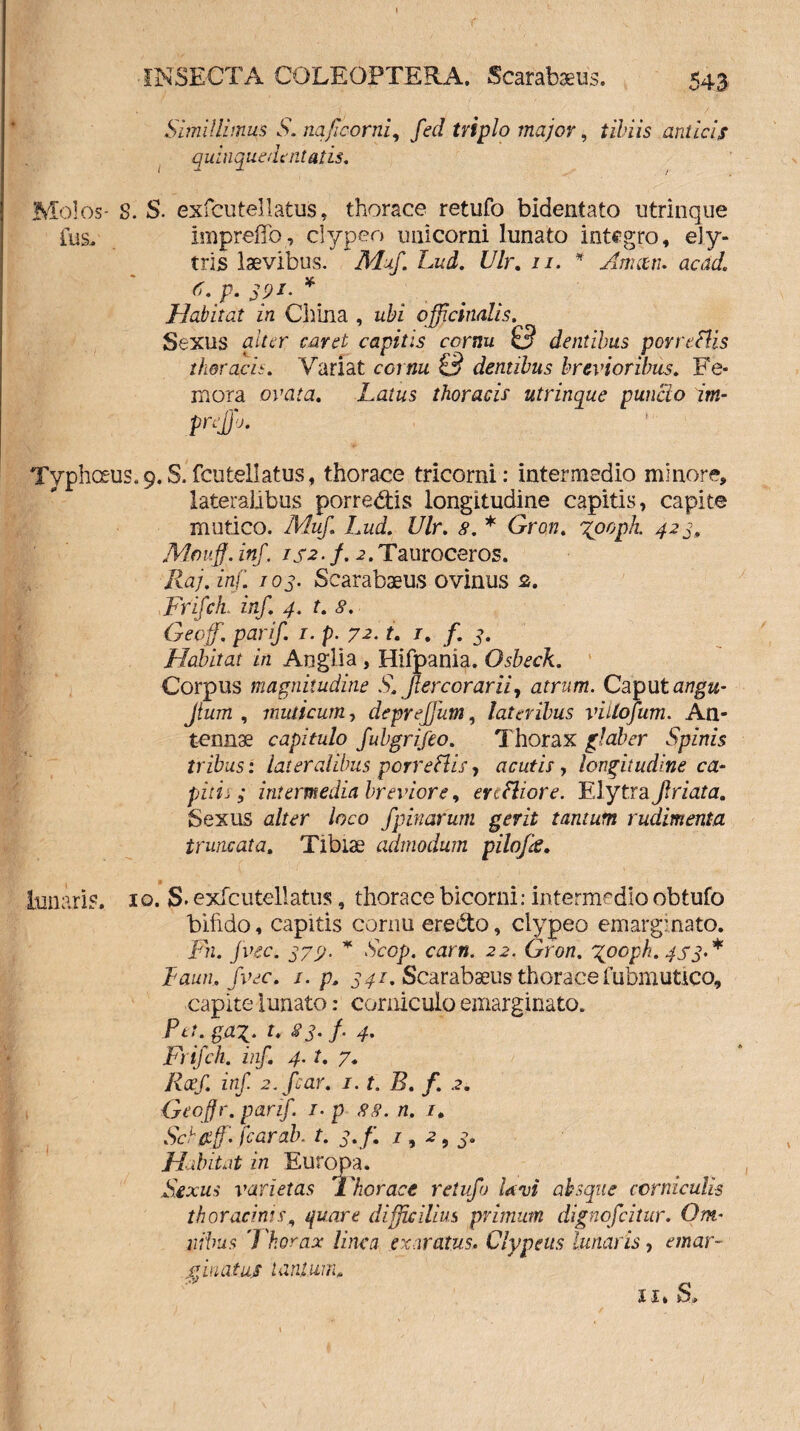 INSECTA COLEOPTERA. Scarabæus. 543
Simillimus S. naſicorni, ſed triplo major, tibiis anticis
quinquedentatis.
Molos- 8. S. exſcutellatus, thorace retuſo bidentato utrinque
ſus. impreſſo, clypeo unicorni lunato integro, ely-
tris lævibus. Muſ. Lud. Ulr. 11. * Amœn. acad.
6. p. 391. *
Habitat in China, ubi officinalis.
Sexus alter caret capitis cornu & dentibus porrectis
thoracis. Variat cornu & dentibus brevioribus. Fe-
mora ovata. Latus thoracis utrinque puncto im-
preſſo.
Typhœus. 9. S. ſcutellatus, thorace tricorni: intermedio minore,
lateralibus porrectis longitudine capitis, capite
mutico. Muſ. Lud. Ulr. 8. * Gron. zooph. 423.
Mouff. inſ. 152. f. 2. Tauroceros.
Raj. inſ. 103. Scarabæus ovinus 2.
Friſch. inſ. 4. t. 8.
Geoff. pariſ. 1. p. 72. t. 1. f. 3.
Habitat in Anglia, Hiſpania. Osbeck.
Corpus magnitudine S. ſtercorarii, atrum. Caput angu-
ſtum, muticum, depreſſum, lateribus villoſum. An-
tennæ capitulo ſubgriſeo. Thorax glaber Spinis
tribus: lateralibus porrectis, acutis, longitudine ca-
pitis; intermedia breviore, erectiore. Elytra ſtriata.
Sexus alter loco ſpinarum gerit tantum rudimenta
truncata. Tibiæ admodum piloſæ.
lunaris. 10. S. exſcutellatus, thorace bicorni: intermedio obtuſo
bifido, capitis cornu erecto, clypeo emarginato.
Fn. ſvec. 379. * Scop. carn. 22. Gron. zooph. 453. *
Faun. ſvec. 1. p. 341. Scarabæus thorace ſubmutico,
capite lunato: corniculo emarginato.
Pet. gaz. t. 83. f. 4.
Friſch. inſ. 4. t. 7.
Rœſ. inſ. 2. ſcar. 1. t. B. f. 2.
Geoffr. pariſ. 1. p. 88. n. 1.
Schæff. ſcarab. t. 3. f. 1, 2, 3.
Habitat in Europa.
Sexus varietas Thorace retuſo lævi absque corniculis
thoracinis, quare difficilius primum dignoſcitur. Om-
nibus Thorax linea exaratus. Clypeus lunaris, emar-
ginatus tantum.
11. S.